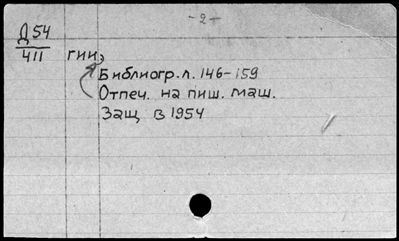 -2-
Д 54
411 гии,
Библиогр. л. 146-159
Отпеч. на пиш. маш.
Защ в 1954